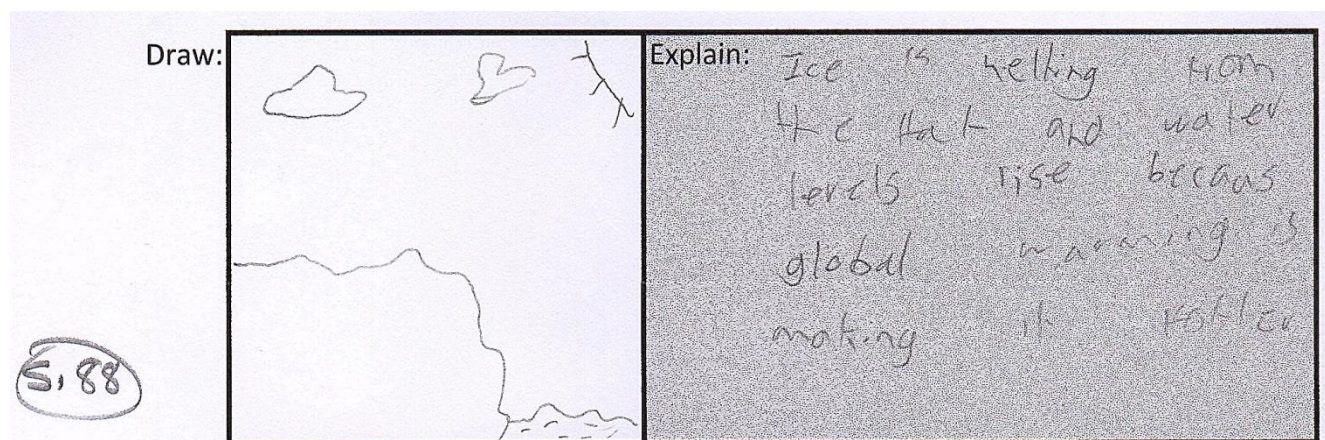 Draw:
Explain:
Ice is melting from
the Hat and water
levels rise becaus
global warming is
making it hotter
S. 88